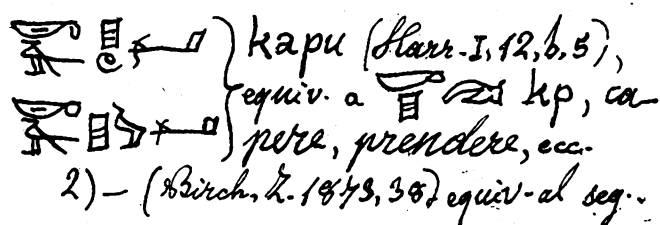 kapu (Harr. I, 12, b, 5),
equiv. a kp, ca-
pere, prendere, ecc.
2) – (Birch, Z. 1873, 38) equiv. al seg..